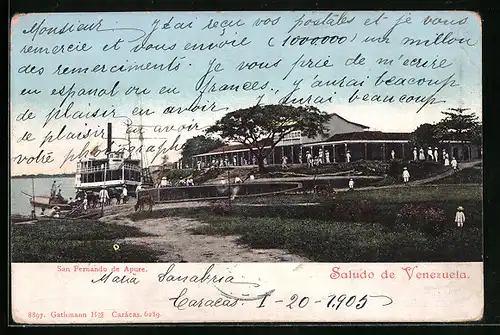 Monsieur J'ai reçu vos postales et je vous
remercie et vous envoie (1000.000) un million
des remerciments. Je vous price de m'ecrire
en espanol ou en frances, y'aurai beaucoup
de plaisir en avoir J'aurai beaucoup
de plaisir en avoir
votre photographie
San Fernando de Apure.
Saludo de Venezuela.
Maria Sanabria
Caracas, 1-20-1905
8897. Gathmann Hos Carácas. 6289.